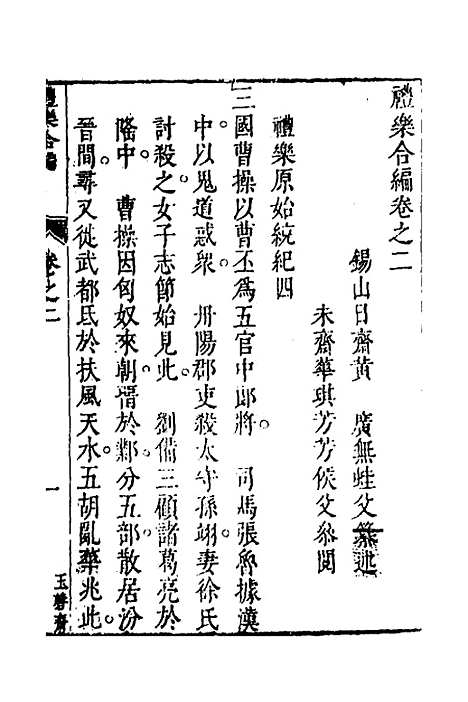 禮樂合編卷之二
錫山日齋黃　廣無蛙父纂述
未齋華琪芳芳侯父叅閱
禮樂原始統紀四
三國曹操以曹丕爲五官中郎將。　司馬張魯據漢
中以鬼道惑衆　丹陽郡吏殺太守孫翊妻徐氏
討殺之女子志節始見此。　劉備三顧諸葛亮於
隆中。　曹操因匈奴來朝畱於鄴。分五部散居汾
晉間。尋又徙武都氐於扶風天水。五胡亂華兆此。
禮樂合編
卷之二
一
玉磬齋